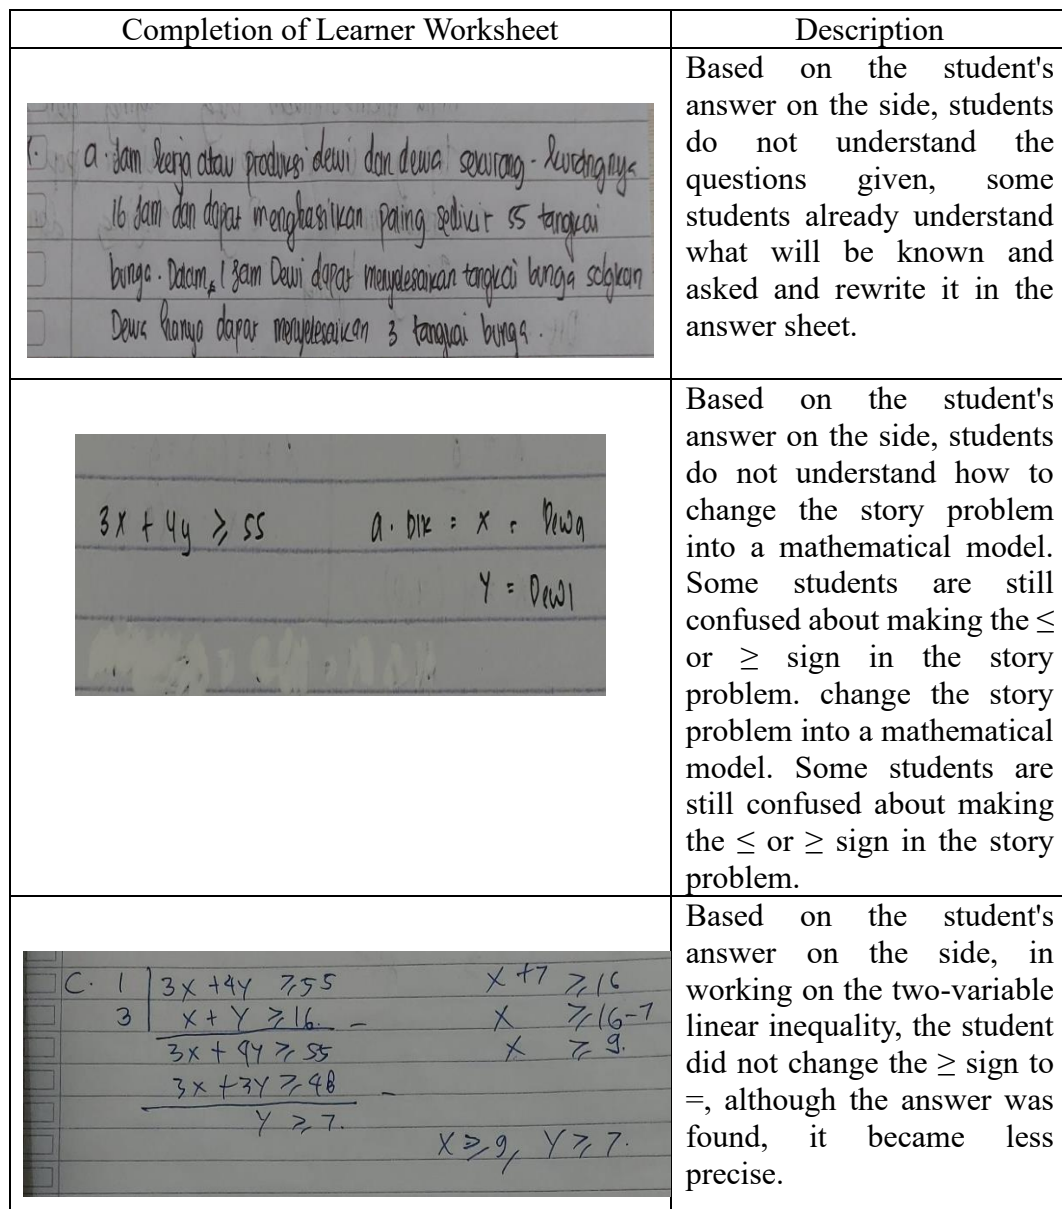 Completion of Learner Worksheet
Description
a. Jam kerja atau produksi dewi dan dewa sekurang-kurangnya
16 Jam dan dapat menghasilkan paling sedikit 55 tangkai
bunga. Dalam 1 Jam Dewi dapat menyelesaikan tangkai bunga sdgkan
Dewa hanya dapat menyelesaikan 3 tangkai bunga.
Based on the student's
answer on the side, students
do not understand the
questions given, some
students already understand
what will be known and
asked and rewrite it in the
answer sheet.
3x + 4y ≥ 55 a. DIK = x = Dewa
Y = Dewi
Based on the student's
answer on the side, students
do not understand how to
change the story problem
into a mathematical model.
Some students are still
confused about making the ≤
or ≥ sign in the story
problem. change the story
problem into a mathematical
model. Some students are
still confused about making
the ≤ or ≥ sign in the story
problem.
C. 1 | 3x + 4y ≥ 55
3 | x + y ≥ 16. -
3x + 4y ≥ 55
3x + 3y ≥ 48 -
y ≥ 7.
x + 7 ≥ 16
x ≥ 16 - 7
x ≥ 9.
x ≥ 9, y ≥ 7.
Based on the student's
answer on the side, in
working on the two-variable
linear inequality, the student
did not change the ≥ sign to
=, although the answer was
found, it became less
precise.